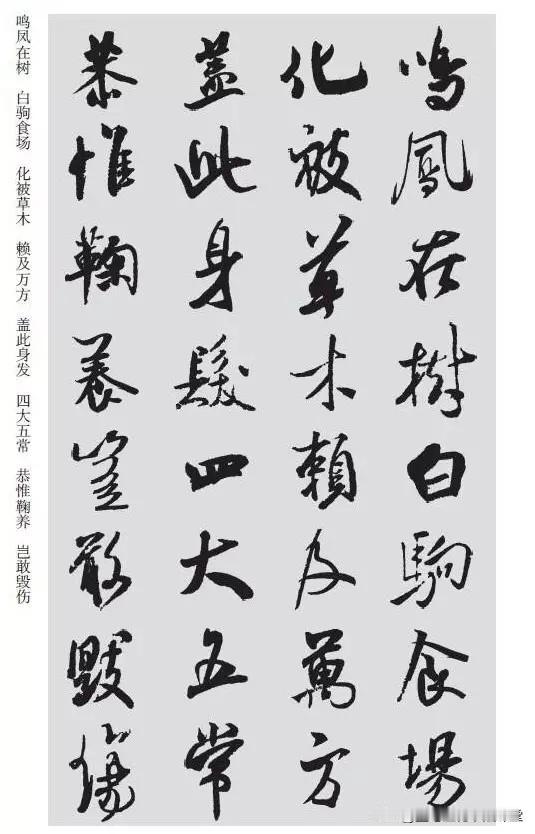 鸣凤在树　白驹食场　化被草木　赖及万方　盖此身发　四大五常　恭惟鞠养　岂敢毁伤
鳴鳳在樹白駒食場
化被草木賴及萬方
蓋此身髮四大五常
恭惟鞠養豈敢毀傷